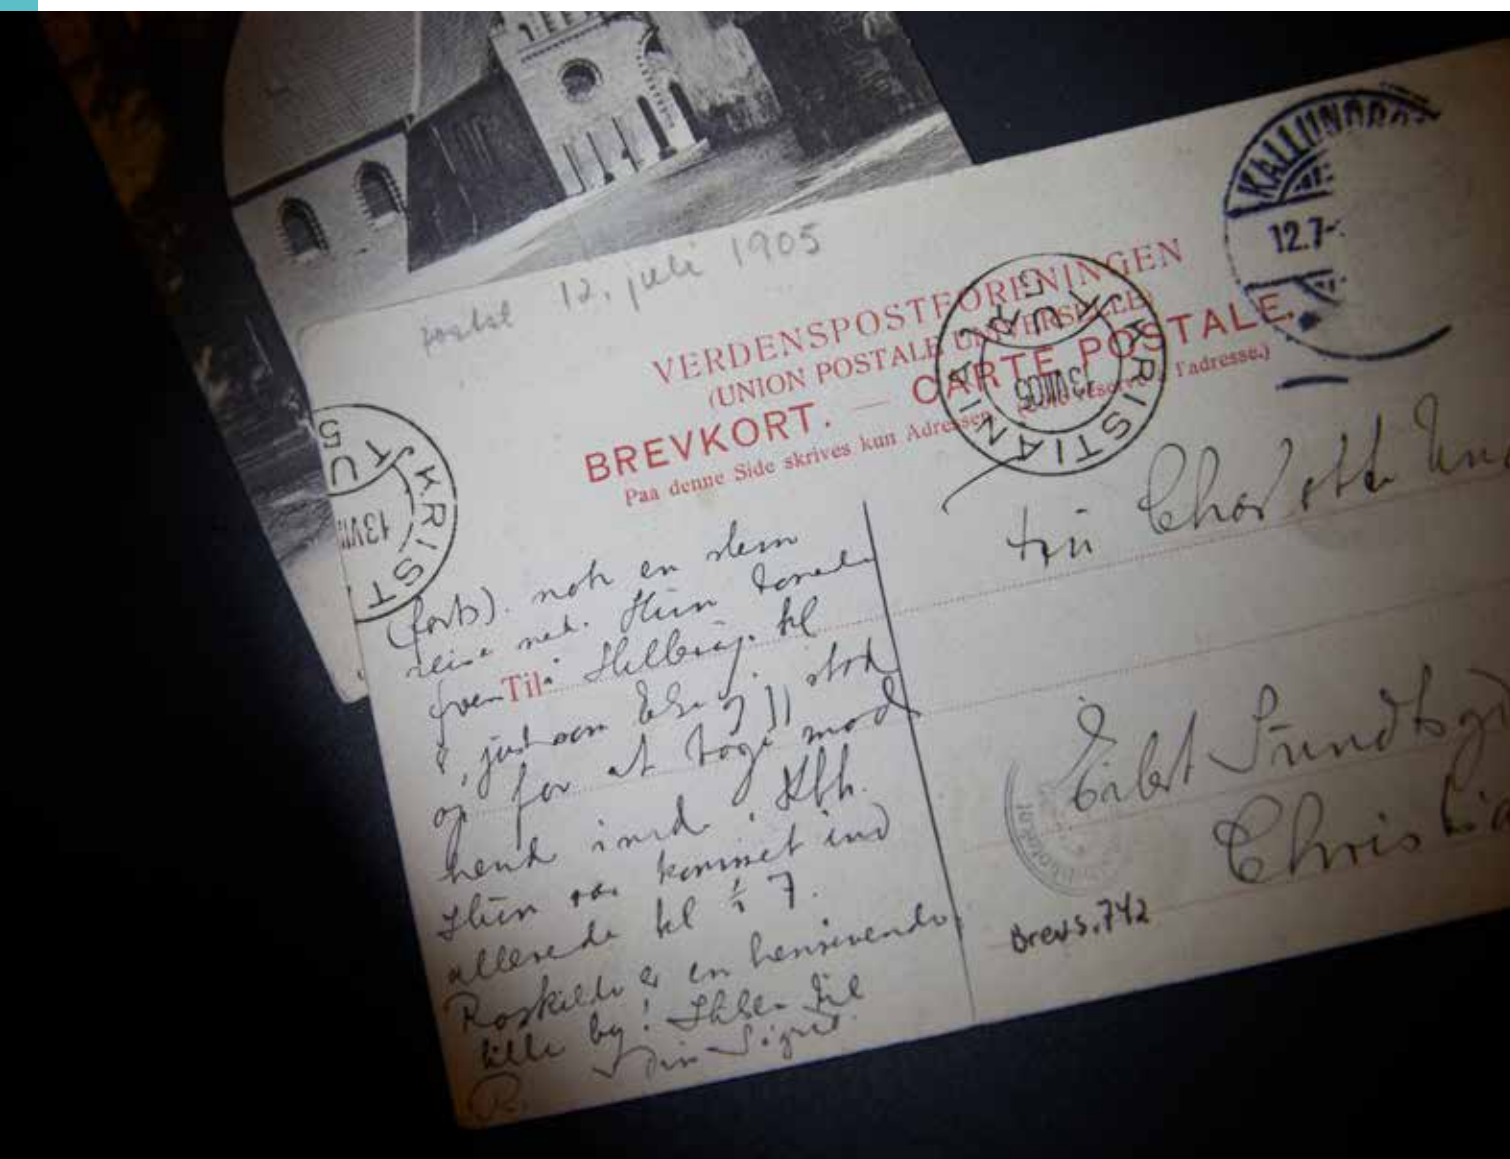 poststl 12. juli 1905
VERDENSPOSTFORENINGEN
(UNION POSTALE UNIVERSELLE)
BREVKORT. — CARTE POSTALE.
Paa denne Side skrives kun Adressen. (Côté réservé à l'adresse.)
KALLUNDBORG
12.7-
KRISTIANIA
13 VII 05
KRIST
13 VII
(forts). nok en slem
reise ned. Hun
frem i Helsing. kl
Til
, just som Else og jj stod
op for at tage mod
hende ind i Kbh.
Hun var kommet ind
allerede kl ½ 7.
Roskilde er en henrivende
lille by! Hilsen til
Din Sigrid.
Frü Charlotte Und
Eilert Sundtsgd
Christia
Brevs. 742